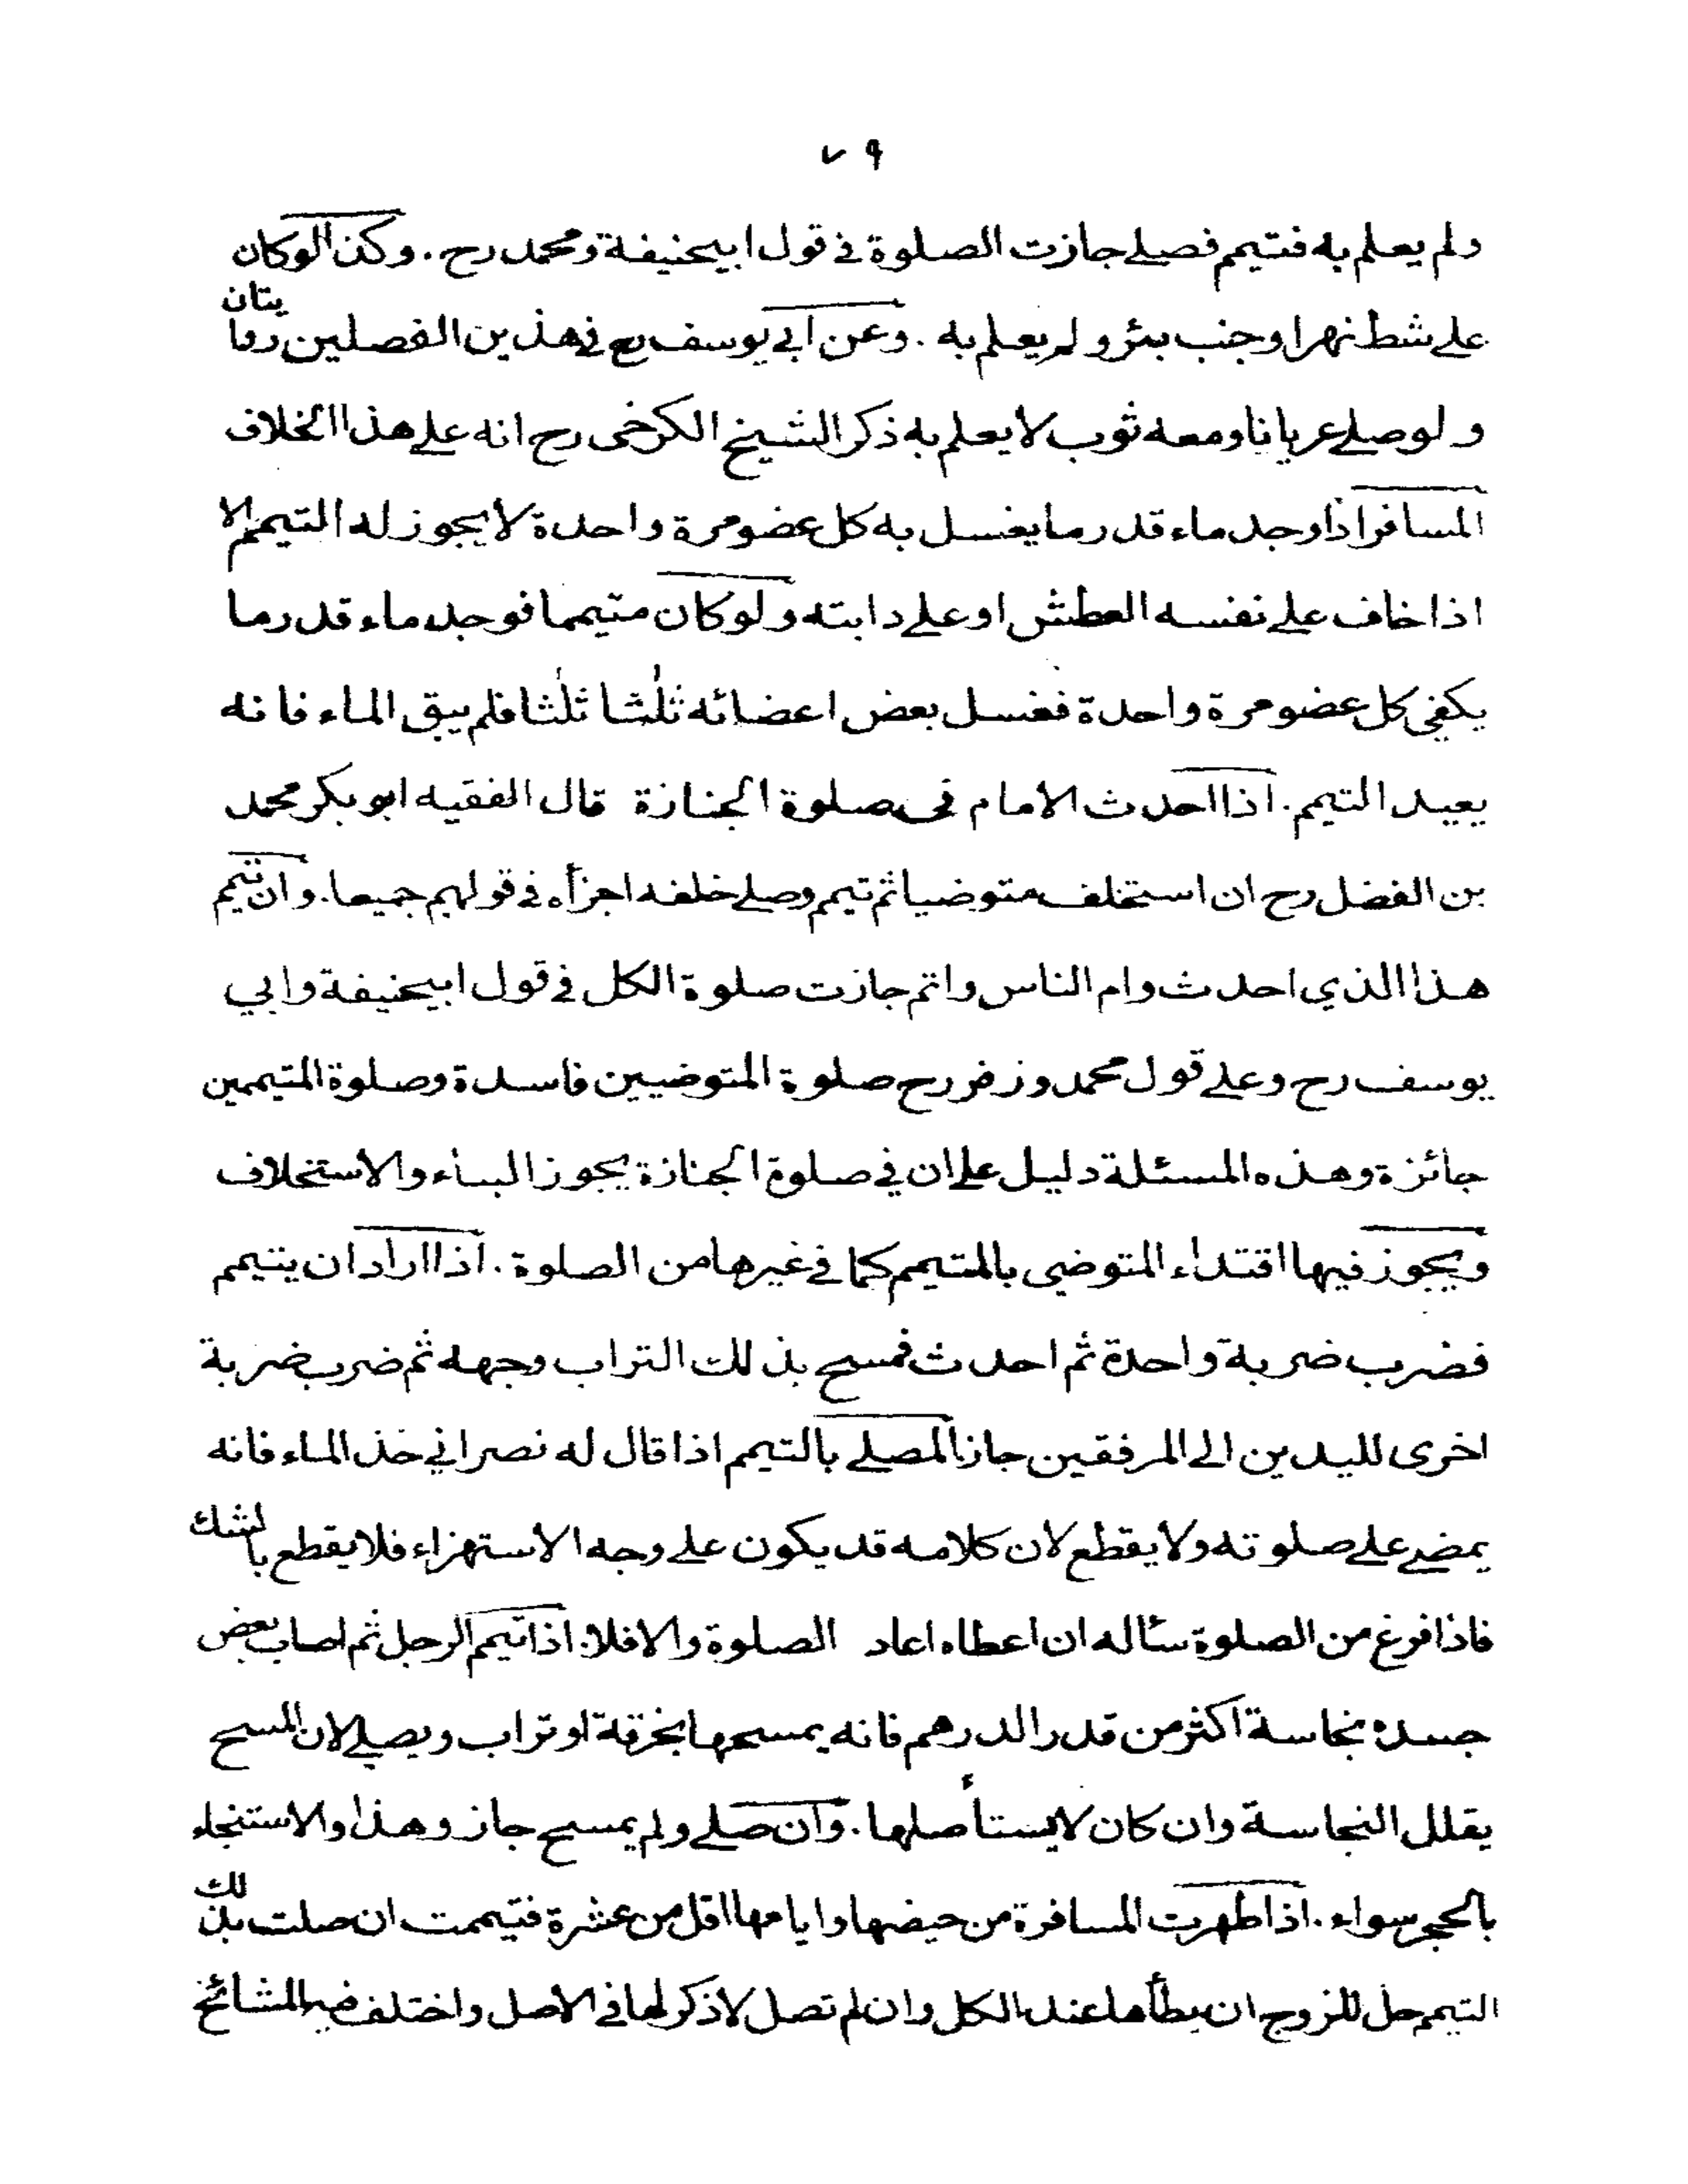 ٧٩
ولم يعلم به فتيمم فصلے جازت الصلوة في قول ابيحنيفة ومحمد رح . وكذا لوكان
علے شط نهر او جنب بئر و لم يعلم به . وعن ابي يوسف رح في هذين الفصلين روايتان
و لو صلے عريانا ومعه ثوب لا يعلم به ذكر الشيخ الكرخى رح انه علے هذا الخلاف
المسافر اذا وجد ماء قدر ما يغسل به كل عضو مرة واحدة لا يجوز له التيمم الا
اذا خاف علے نفسه العطش او علے دابته و لو كان متيمما فوجد ماء قدر ما
يكفي كل عضو مرة واحدة فغسل بعض اعضائه ثلٰثا ثلٰثا فلم يبق الماء فانه
يعيد التيمم . اذا احدث الامام فى صلوة الجنازة قال الفقيه ابو بكر محمد
بن الفضل رح ان استخلف متوضيا ثم تيمم وصلے خلفه اجزأه في قولهم جميعا . وان تيمم
هذا الذي احدث وام الناس واتم جازت صلوة الكل في قول ابيحنيفة وابي
يوسف رح وعلے قول محمد وزفر رح صلوة المتوضيين فاسدة وصلوة المتيممين
جائزة وهذه المسئلة دليل علے ان في صلوة الجنازة يجوز البناء والاستخلاف
ويجوز فيها اقتداء المتوضي بالمتيمم كما في غيرها من الصلوة . اذا اراد ان يتيمم
فضرب ضربة واحدة ثم احدث فمسح بذلك التراب وجهه ثم ضرب ضربة
اخرى لليدين الى المرفقين جاز المصلے بالتيمم اذا قال له نصراني خذ الماء فانه
يمضے علے صلوته ولا يقطع لان كلامه قد يكون علے وجه الاستهزاء فلا يقطع بالشك
فاذا فرغ من الصلوة سئاله ان اعطاه اعاد الصلوة والا فلا . اذا تيمم الرجل ثم اصاب بعض
جسده نجاسة اكثر من قدر الدرهم فانه يمسحها بخرقة او تراب ويصلے لان المسح
يقلل النجاسة وان كان لا يستأصلها . وان صلے ولم يمسح جاز وهذا والاستنجاء
بالحجر سواء . اذا طهرت المسافرة من حيضها وايامها اقل من عشرة فتيممت ان صلت بذلك
التيمم حل للزوج ان يطأها عند الكل وان لم تصل لا ذكر لها في الاصل واختلف فيه المشائخ